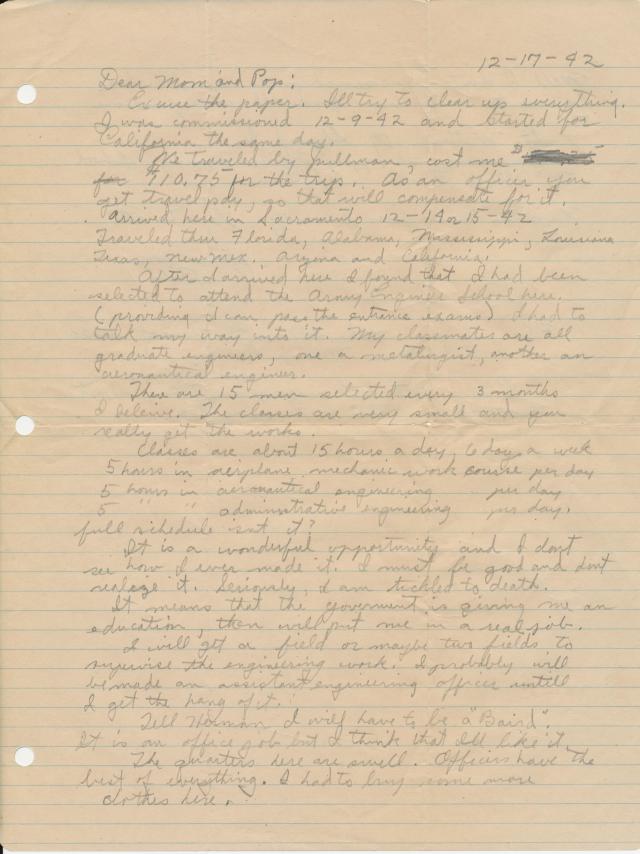 12-17-42
Dear Mom and Pop:
Excuse the paper. I'll try to clear up everything.
I was commissioned 12-9-42 and started for
California the same day.
We traveled by pullman, cost me $
for $110.75 for the trip. As an officer you
get travel pay, so that will compensate for it.
Arrived here in Sacramento 12-14 or 15-42
Traveled thru Florida, Alabama, Mississippi, Louisiana
Texas, new mex. Arizina and California.
After I arrived here I found that I had been
selected to attend the Army Engineers School here.
(providing I can pass the entrance exams) I had to
talk my way into it. My classmates are all
graduate engineers, one a metalurgist, another an
aeronautical engineer.
There are 15 men selected every 3 months
I beleive. The classes are very small and you
really get the works.
Classes are about 15 hours a day, 6 days a week
5 hours in airplane mechanic work course per day
5 hours in aeronautical engineering per day
5 " " administrative engineering per day.
full schedule isnt it?
It is a wonderful opportunity and I dont
see how I ever made it. I must be good and dont
realize it. Seriously, I am tickled to death.
It means that the goverment is giving me an
education, then will put me in a real job.
I will get a field or maybe two fields to
supervise the engineering work. I probably will
be made an assistant engineering officer untill
I get the hang of it.
Tell Norman I will have to be a "Baird".
It is an office job but I think that I'll like it.
The quarters here are swell. Officers have the
best of everything. I had to buy some more
clothes here.